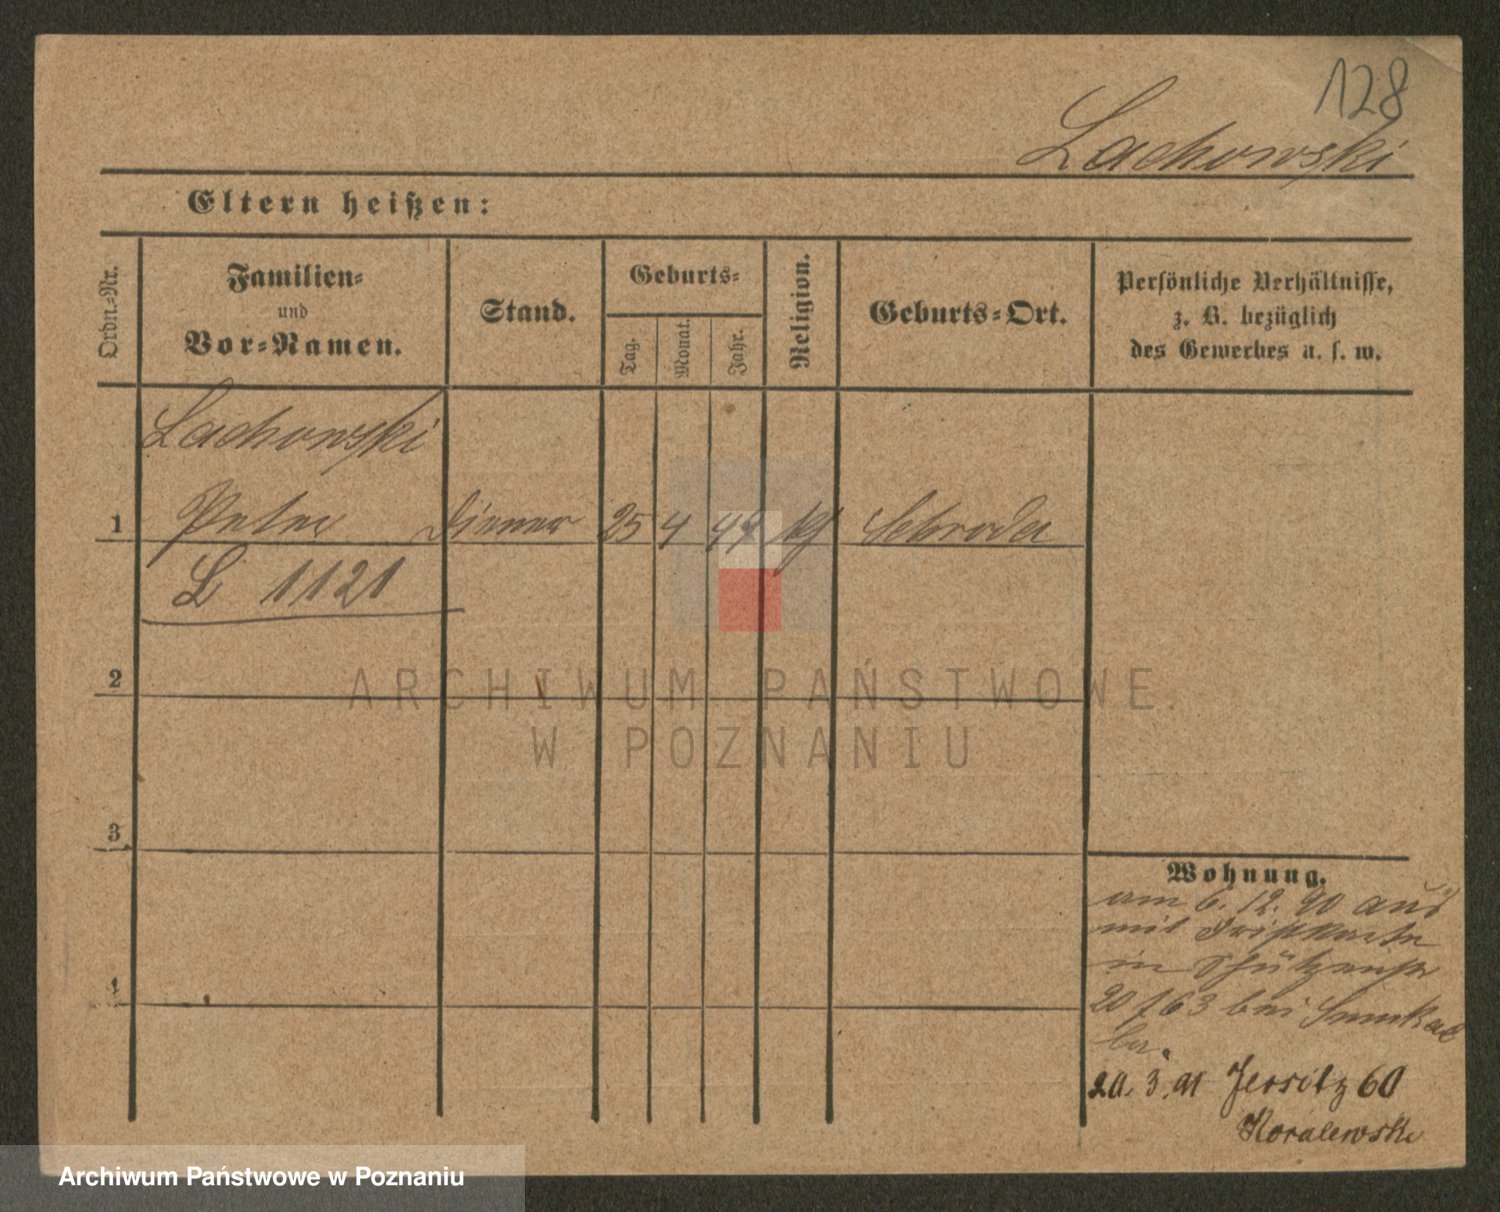 128
Lachowski
Eltern heißen:
Ordn.-Nr.
Familien-
und
Vor-Namen.
Stand.
Geburts-
Tag.
Monat.
Jahr.
Religion.
Geburts-Ort.
Persönliche Verhältnisse,
z. B. bezüglich
des Gewerbes u. s. w.
Lachowski
1 Peter Diener 25 4 49 kh Schroda
L 1121
2
ARCHIWUM PAŃSTWOWE
W POZNANIU
3
4
Wohnung.
am 6. 12. 90 aus
mit
in Schützenstr
20 f 63 bei
20. 3. 91 Jersitz 60
Koralewski
Archiwum Państwowe w Poznaniu